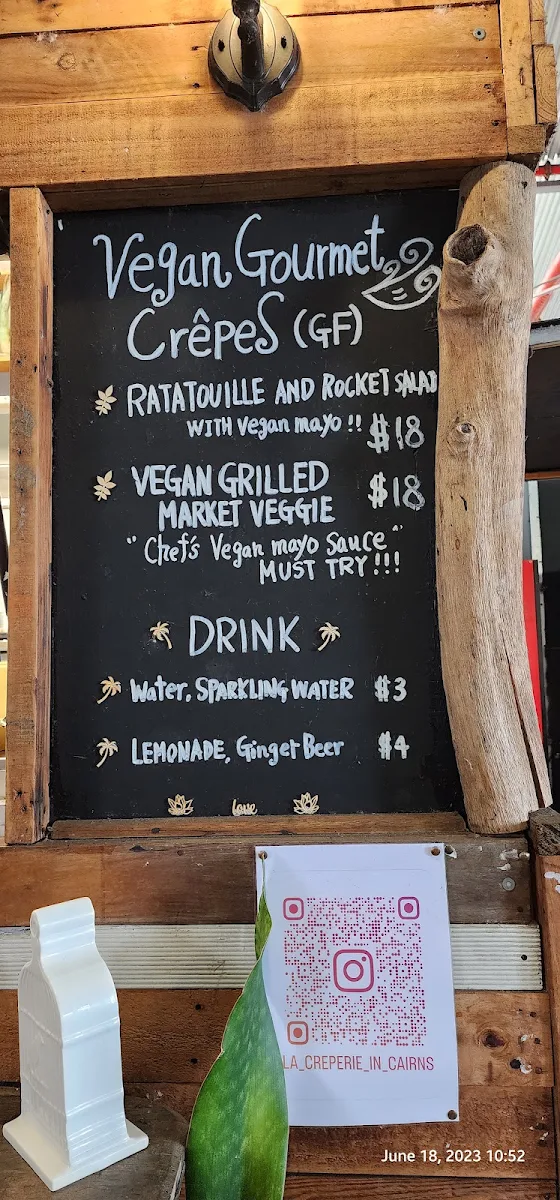 Vegan Gourmet
Crêpes (GF)
RATATOUILLE AND ROCKET SALAD
WITH Vegan mayo !! $18
VEGAN GRILLED $18
MARKET VEGGIE
"Chef's Vegan mayo Sauce"
MUST TRY!!!
DRINK
Water, SPARKLING WATER $3
LEMONADE, Ginger Beer $4
love
LA_CREPERIE_IN_CAIRNS
June 18, 2023 10:52